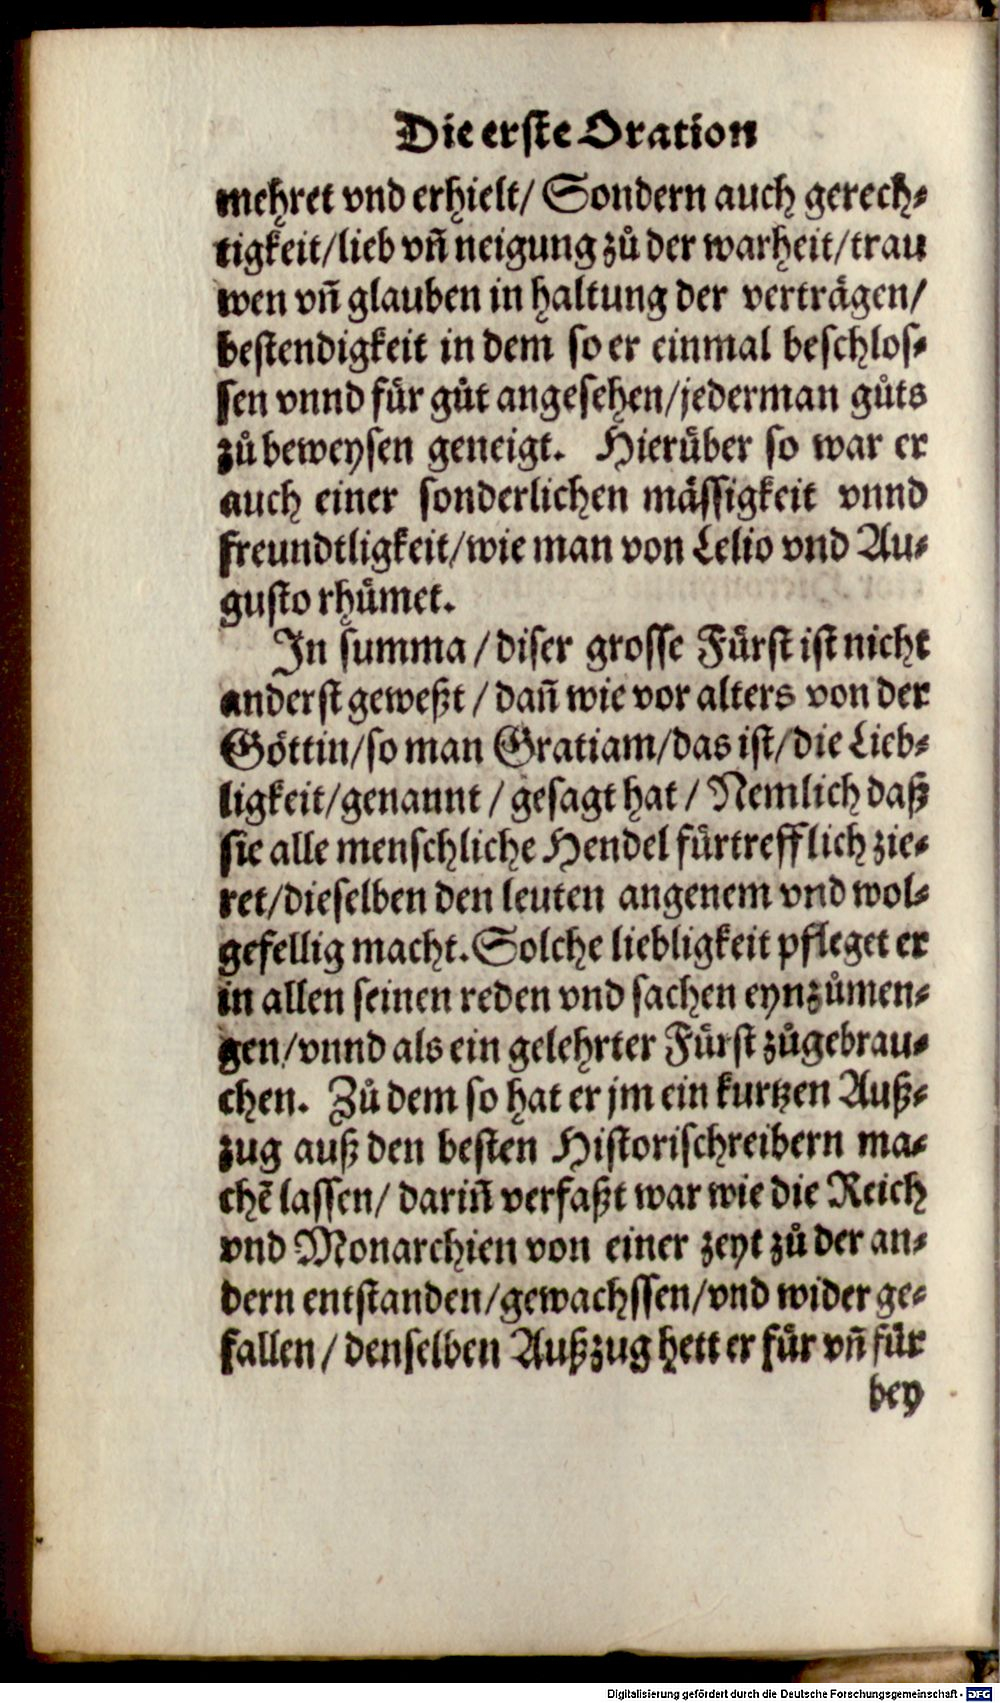 Die erste Oration
mehret vnd erhielt/ Sondern auch gerech⸗
tigkeit/lieb vñ neigung zů der warheit/trau
wen vñ glauben in haltung der verträgen/
bestendigkeit in dem so er einmal beschlos⸗
sen vnnd für gůt angesehen/jederman gůts
zů beweysen geneigt. Hierüber so war er
auch einer sonderlichen mässigkeit vnnd
freundtligkeit/wie man von Lelio vnd Au⸗
gusto rhümet.
In summa/diser grosse Fürst ist nicht
anderst geweßt/dañ wie vor alters von der
Göttin/so man Gratiam/das ist/die Lieb⸗
ligkeit/genannt/gesagt hat/Nemlich daß
sie alle menschliche Hendel fürtrefflich zie⸗
ret/dieselben den leuten angenem vnd wol⸗
gefellig macht. Solche liebligkeit pfleget er
in allen seinen reden vnd sachen eynzůmen⸗
gen/vnnd als ein gelehrter Fürst zůgebrau⸗
chen. Zů dem so hat er jm ein kurtzen Auß⸗
zug auß den besten Historischreibern ma⸗
chẽ lassen/ dariñ verfaßt war wie die Reich
vnd Monarchien von einer zeyt zů der an⸗
dern entstanden/gewachssen/vnd wider ge⸗
fallen/denselben Außzug hett er für vñ für
bey
Digitalisierung gefördert durch die Deutsche Forschungsgemeinschaft - DFG